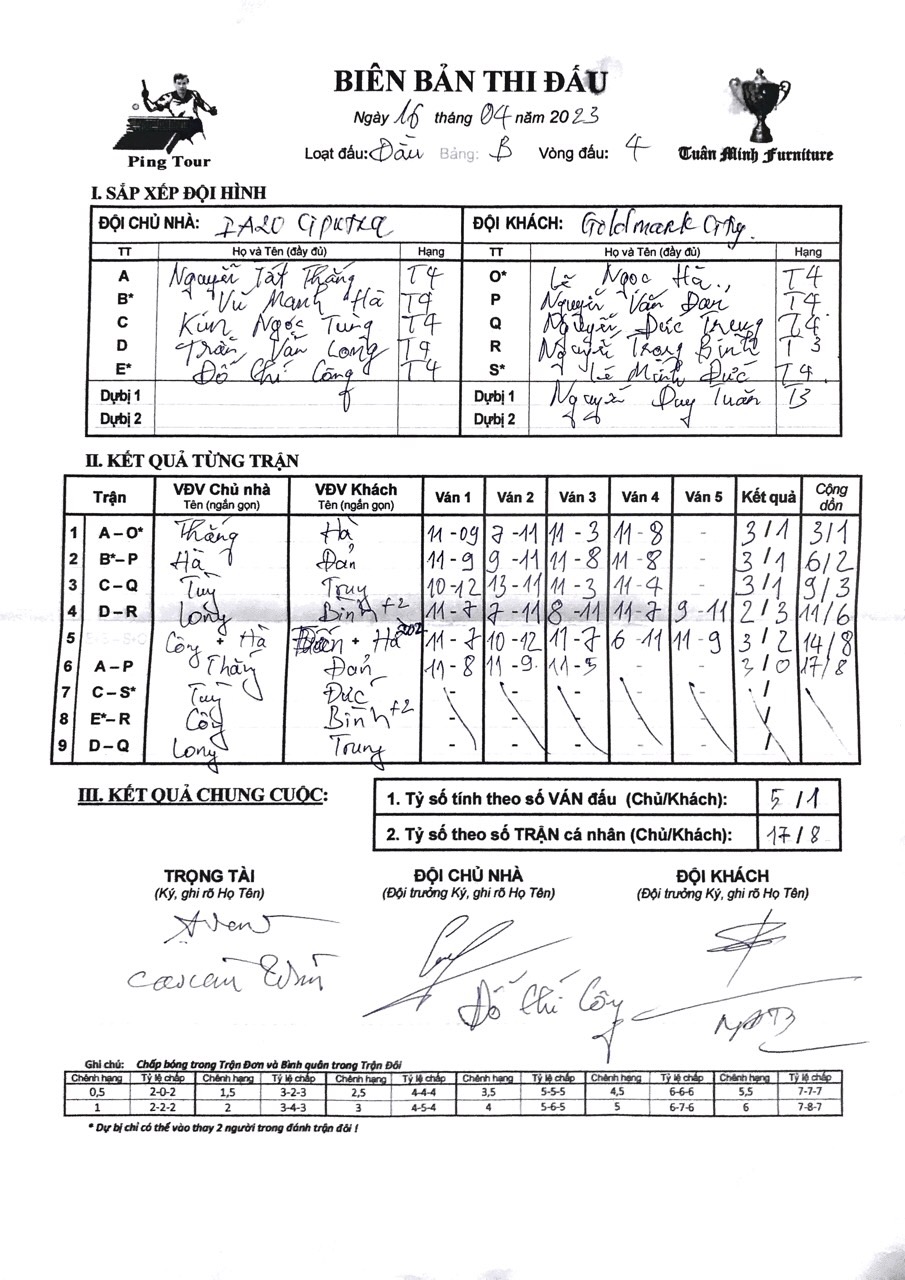 BIÊN BẢN THI ĐẤU
Ngày 16 tháng 04 năm 2023
Ping Tour
Loạt đấu: Đầu Bảng: B Vòng đấu: 4
Tuân Minh Furniture
I. SẮP XẾP ĐỘI HÌNH
ĐỘI CHỦ NHÀ: IA20 Ciputra ĐỘI KHÁCH: Goldmark City.
TT Họ và Tên (đầy đủ) Hạng TT Họ và Tên (đầy đủ) Hạng
A Nguyễn Tất Thắng T4 O* Lê Ngọc Hà T4
B* Vũ Mạnh Hà T4 P Nguyễn Văn Đan T4
C Kim Ngọc Tùng T4 Q Nguyễn Đức Trung T4
D Trần Văn Long T4 R Nguyễn Trọng Bình T3
E* Đỗ Chí Công T4 S* Lê Minh Đức T4
Dự bị 1 Dự bị 1 Nguyễn Duy Tuân T3
Dự bị 2 Dự bị 2
II. KẾT QUẢ TỪNG TRẬN
Trận VĐV Chủ nhà Tên (ngắn gọn) VĐV Khách Tên (ngắn gọn) Ván 1 Ván 2 Ván 3 Ván 4 Ván 5 Kết quả Cộng dồn
1 A – O* Thắng Hà 11-09 7-11 11-3 11-8 - 3/1 3/1
2 B* – P Hà Đan 11-9 9-11 11-8 11-8 - 3/1 6/2
3 C – Q Tùng Trung 10-12 13-11 11-3 11-4 - 3/1 9/3
4 D – R Long Bình +2 11-7 7-11 8-11 11-7 9-11 2/3 11/6
5 Công + Hà + Hà 11-7 10-12 11-7 6-11 11-9 3/2 14/8
6 A – P Thắng Đan 11-8 11-9 11-5 - 3/0 17/8
7 C – S* Tùng Đức - - - - - /
8 E* – R Công Bình +2 - - - - - /
9 D – Q Long Trung - - - - - /
III. KẾT QUẢ CHUNG CUỘC:
1. Tỷ số tính theo số VÁN đấu (Chủ/Khách): 5/1
2. Tỷ số theo số TRẬN cá nhân (Chủ/Khách): 17/8
TRỌNG TÀI ĐỘI CHỦ NHÀ ĐỘI KHÁCH
(Ký, ghi rõ Họ Tên) (Đội trưởng Ký, ghi rõ Họ Tên) (Đội trưởng Ký, ghi rõ Họ Tên)
Đỗ Chí Công
Ghi chú: Chấp bóng trong Trận Đơn và Bình quân trong Trận Đôi
Chênh hạng Tỷ lệ chấp Chênh hạng Tỷ lệ chấp Chênh hạng Tỷ lệ chấp Chênh hạng Tỷ lệ chấp Chênh hạng Tỷ lệ chấp Chênh hạng Tỷ lệ chấp
0,5 2-0-2 1,5 3-2-3 2,5 4-4-4 3,5 5-5-5 4,5 6-6-6 5,5 7-7-7
1 2-2-2 2 3-4-3 3 4-5-4 4 5-6-5 5 6-7-6 6 7-8-7
* Dự bị chỉ có thể vào thay 2 người trong đánh trận đôi !